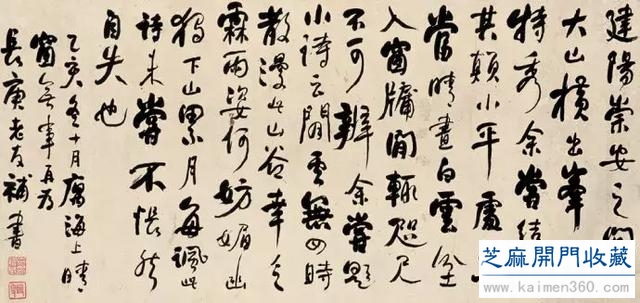 建陽崇安之間
大山橫出峯
特秀余嘗結
其顛小平處
當晴晝白雲坌
入窗牖間輒咫尺
不可辨余嘗題
小詩云閒雲無四時
散漫此山谷幸乏
霖雨姿何妨媚幽
獨下山累月每諷此
詩未嘗不悵然
自失也
乙亥冬十月寓海上晴
窗無事再為
長庚老友補書
芝麻開門收藏
www.kaimen360.com